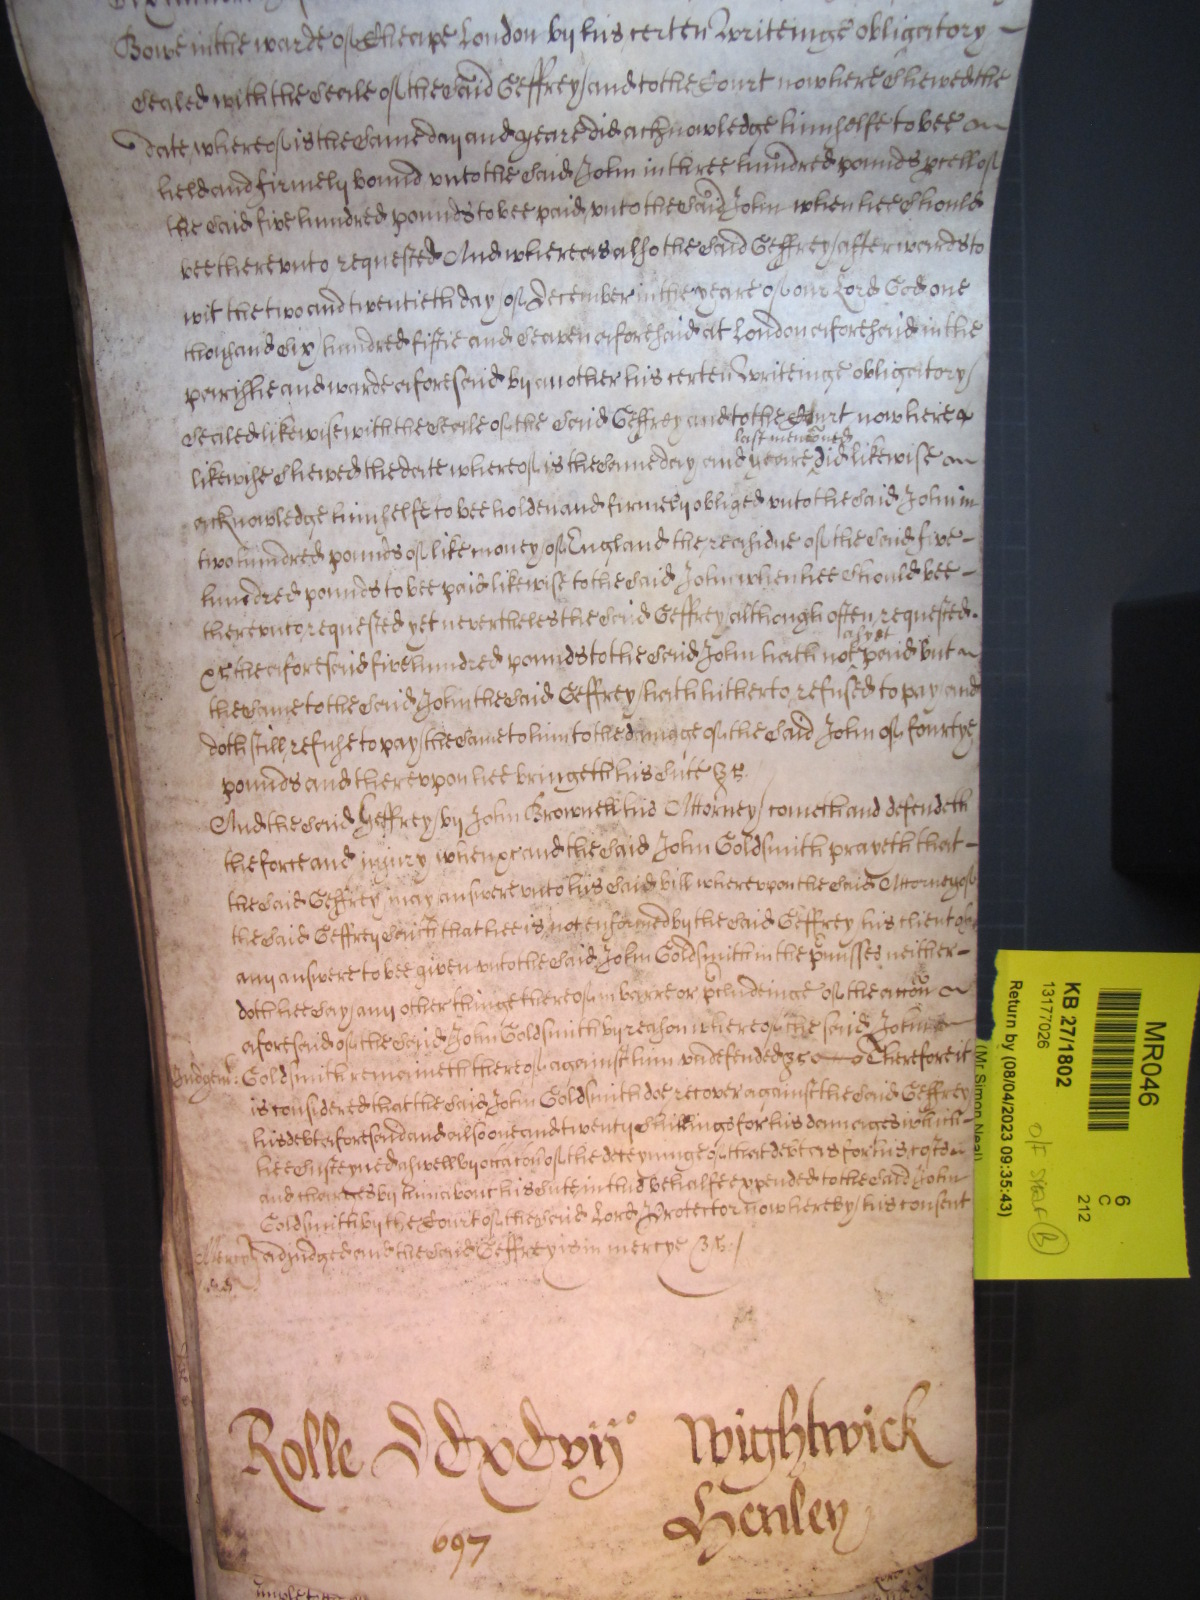 Bowe in the warde of Cheape London by his certen Writeinge obligatory
Sealed with the Seale of the said Geffrey and to the Court now here Shewed the
date whereof is the same day and yeare did acknowledge himselfe to bee
held and firmely bound unto the said John in three hundred pounds pcell of
the said five hundred pounds to bee paid unto the said John when hee should
bee thereunto requested And whereas also the said Geffrey afterwards to
wit the two and twentieth day of December in the yeare of our Lord God one
thousand six hundred fiftie and seaven aforesaid at London aforesaid in the
parishe and warde aforesaid by another his certen Writeinge obligatory
Sealed likewise with the Seale of the said Geffrey and to the Court now here
last menconed
likewise Shewed the date whereof is the same day and yeare did likewise
acknowledge himselfe to bee holden and firmely obliged unto the said John in
two hundred pounds of like money of England the residue of the said five
hundred pounds to bee paid likewise to the said John when hee should bee
thereunto requested yet nevertheles the said Geffrey although often requested
as yet
&c the aforesaid five hundred pounds to the said John hath not paid but
the same to the said John the said Geffrey hath hitherto refused to pay and
doth still refuse to pay the same to him to the damage of the said John of fourtye
pounds and thereupon hee bringeth his Sute &c
And the said Geffrey by John Brownell his Attorney cometh and defendeth
the force and injury when &c and the said John Goldsmith prayeth that
the said Geffrey may answere unto his said bill whereupon the said Attorney of
the said Geffrey saith that hee is not enformed by the said Geffrey his client of
any answere to bee given unto the said John Goldsmith in the pmisses neither
doth hee say any other thinge thereof in barre or pcludeinge of the accon
aforesaid of the said John Goldsmith by reason whereof the said John
Judgemt: Goldsmith remaineth thereof against him undefended &c Therefore it
is considered that the said John Goldsmith doe recover against the said Geffrey
his debt aforesaid and also one and twenty shillings for his damages which
hee susteyned aswell by occacon of the deteyninge of that debt as for his costs
and charges by him about his Sute in that behalfe expended to the said John
Goldsmith by the Court of the said Lord Protector now here by his consent
Mercy adjudged and the said Geffrey is in mercye &c
Rolle DCxCvijo Wightwick
Henley
697
MR046
KB 27/1802
13177026
Return by (08/04/2023 09:35:43)
(Mr Simon Neal)
6
C
212
O/F SHELF B